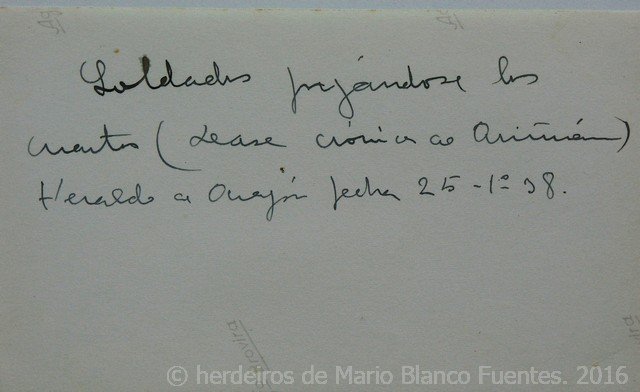 Soldados jugándose los
cuartos (Lease crónica de Ariñán)
Heraldo de Aragón fecha 25-1º 38.
© herdeiros de Mario Blanco Fuentes. 2016